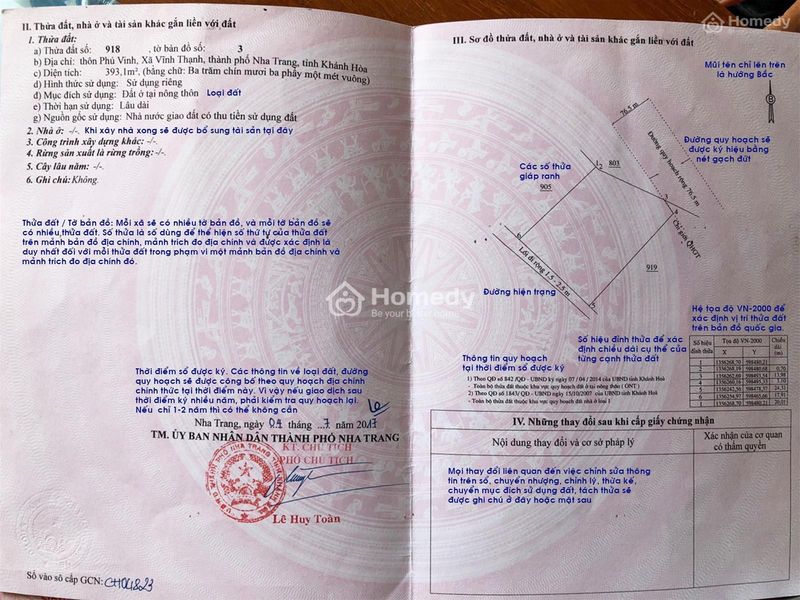 II. Thửa đất, nhà ở và tài sản khác gắn liền với đất
1. Thửa đất:
a) Thửa đất số: 918 tờ bản đồ số: 3
b) Địa chỉ: thôn Phú Vinh, Xã Vĩnh Thạnh, thành phố Nha Trang, tỉnh Khánh Hòa
c) Diện tích: 393,1m², (bằng chữ: Ba trăm chín mươi ba phẩy một mét vuông)
d) Hình thức sử dụng: Sử dụng riêng
đ) Mục đích sử dụng: Đất ở tại nông thôn Loại đất
e) Thời hạn sử dụng: Lâu dài
g) Nguồn gốc sử dụng: Nhà nước giao đất có thu tiền sử dụng đất
2. Nhà ở: -/- Khi xây nhà xong sẽ được bổ sung tài sản tại đây
3. Công trình xây dựng khác: -/-
4. Rừng sản xuất là rừng trồng: -/-
5. Cây lâu năm: -/-
6. Ghi chú: Không.
Thửa đất / Tờ bản đồ: Mỗi xã sẽ có nhiều tờ bản đồ, và mỗi tờ bản đồ sẽ
có nhiều thửa đất. Số thửa là số dùng để thể hiện số thứ tự của thửa đất
trên mảnh bản đồ địa chính, mảnh trích đo địa chính và được xác định là
duy nhất đối với mỗi thửa đất trong phạm vi một mảnh bản đồ địa chính và
mảnh trích đo địa chính đó.
Thời điểm sổ được ký. Các thông tin về loại đất, đường
quy hoạch sẽ được công bố theo quy hoạch địa chính
chính thức tại thời điểm này. Vì vậy nếu giao dịch sau
thời điểm ký nhiều năm, phải kiểm tra quy hoạch lại.
Nếu chỉ 1-2 năm thì có thể không cần
Nha Trang, ngày 04 tháng 7 năm 2017
TM. ỦY BAN NHÂN DÂN THÀNH PHỐ NHA TRANG
KT. CHỦ TỊCH
PHÓ CHỦ TỊCH
Lê Huy Toàn
Số vào sổ cấp GCN: CH04823
Homedy
Be your better home
Homedy
III. Sơ đồ thửa đất, nhà ở và tài sản khác gắn liền với đất
Mũi tên chỉ lên trên
là hướng Bắc
B
76.5 m
Đường quy hoạch rộng 76.5 m
Đường quy hoạch sẽ
được ký hiệu bằng
nét gạch đứt
Các số thửa
giáp ranh
803
905
1
2
Chỉ giới QHGT
919
Lối đi rộng 1.5 - 2.5 m
Đường hiện trạng
Hệ tọa độ VN-2000 để
xác định vị trí thửa đất
trên bản đồ quốc gia.
Số hiệu đỉnh thửa để xác
định chiều dài cụ thể của
từng cạnh thửa đất
Thông tin quy hoạch
tại thời điểm sổ được ký
Số hiệu đỉnh thửa
Tọa độ VN-2000
X Y
Chiều dài (m)
1) Theo QĐ số 842 /QĐ - UBND ký ngày 07 / 04 / 2014 của UBND tỉnh Khánh Hoà
- Toàn bộ thửa đất thuộc khu vực quy hoạch đất ở tại nông thôn ( ONT )
2) Theo QĐ số 1843/ QĐ - UBND ký ngày 15/10/2007 của UBND tỉnh Khánh Hoà
- Toàn bộ thửa đất thuộc khu vực quy hoạch đất nhà ở loại 1
IV. Những thay đổi sau khi cấp giấy chứng nhận
Nội dung thay đổi và cơ sở pháp lý
Xác nhận của cơ quan
có thẩm quyền
Mọi thay đổi liên quan đến việc chỉnh sửa thông
tin trên sổ, chuyển nhượng, chỉnh lý, thừa kế,
chuyển mục đích sử dụng đất, tách thửa sẽ
được ghi chú ở đây hoặc mặt sau